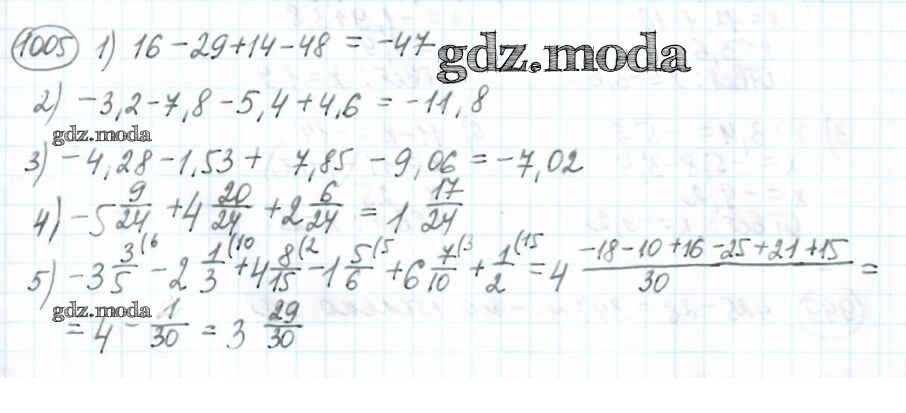 1005 1) 16 - 29 + 14 - 48 = -47
gdz.moda
2) -3,2 - 7,8 - 5,4 + 4,6 = -11,8
gdz.moda
3) -4,28 - 1,53 + 7,85 - 9,06 = -7,02
4) -5 9/24 + 4 20/24 + 2 6/24 = 1 17/24
5) -3 3/5 (6 - 2 1/3 (10 + 4 8/15 (2 - 1 5/6 (5 + 6 7/10 (3 + 1/2 (15 = 4 (-18-10+16-25+21+15)/30 =
gdz.moda
= 4 - 1/30 = 3 29/30